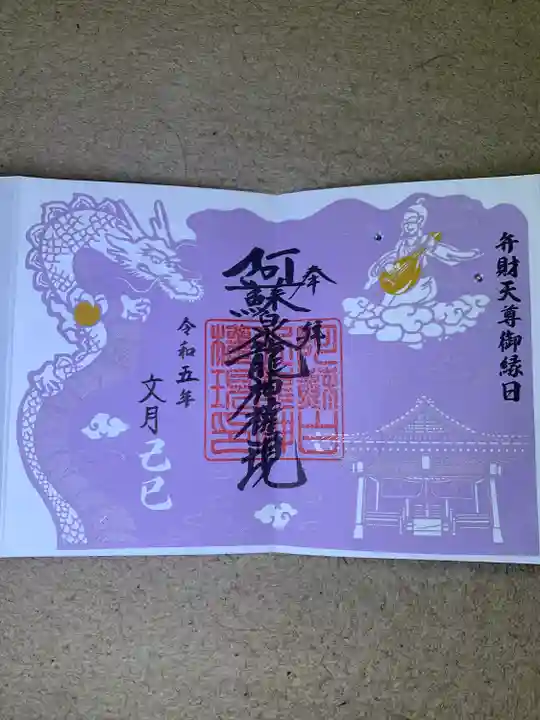 弁財天尊御縁日
奉拝
阿蘇白水龍神權現
令和五年
文月 己巳